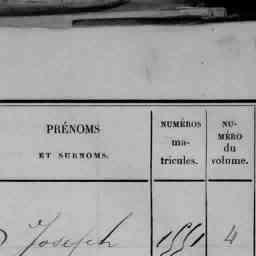 PRÉNOMS
ET SURNOMS.
NUMÉROS
ma-
tricules.
NU-
MÉRO
du
volume.
Joseph 1551 4